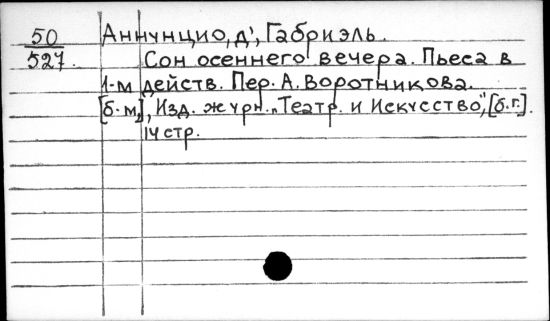 50
527
Аннунцио, д', Габриэль.
Сон осеннего вечера. Пьеса в
1-м действ. Пер. А. Воротникова.
[б.м.], Изд. журн. „Театр. и Искусство", [б.г.].
14 стр.